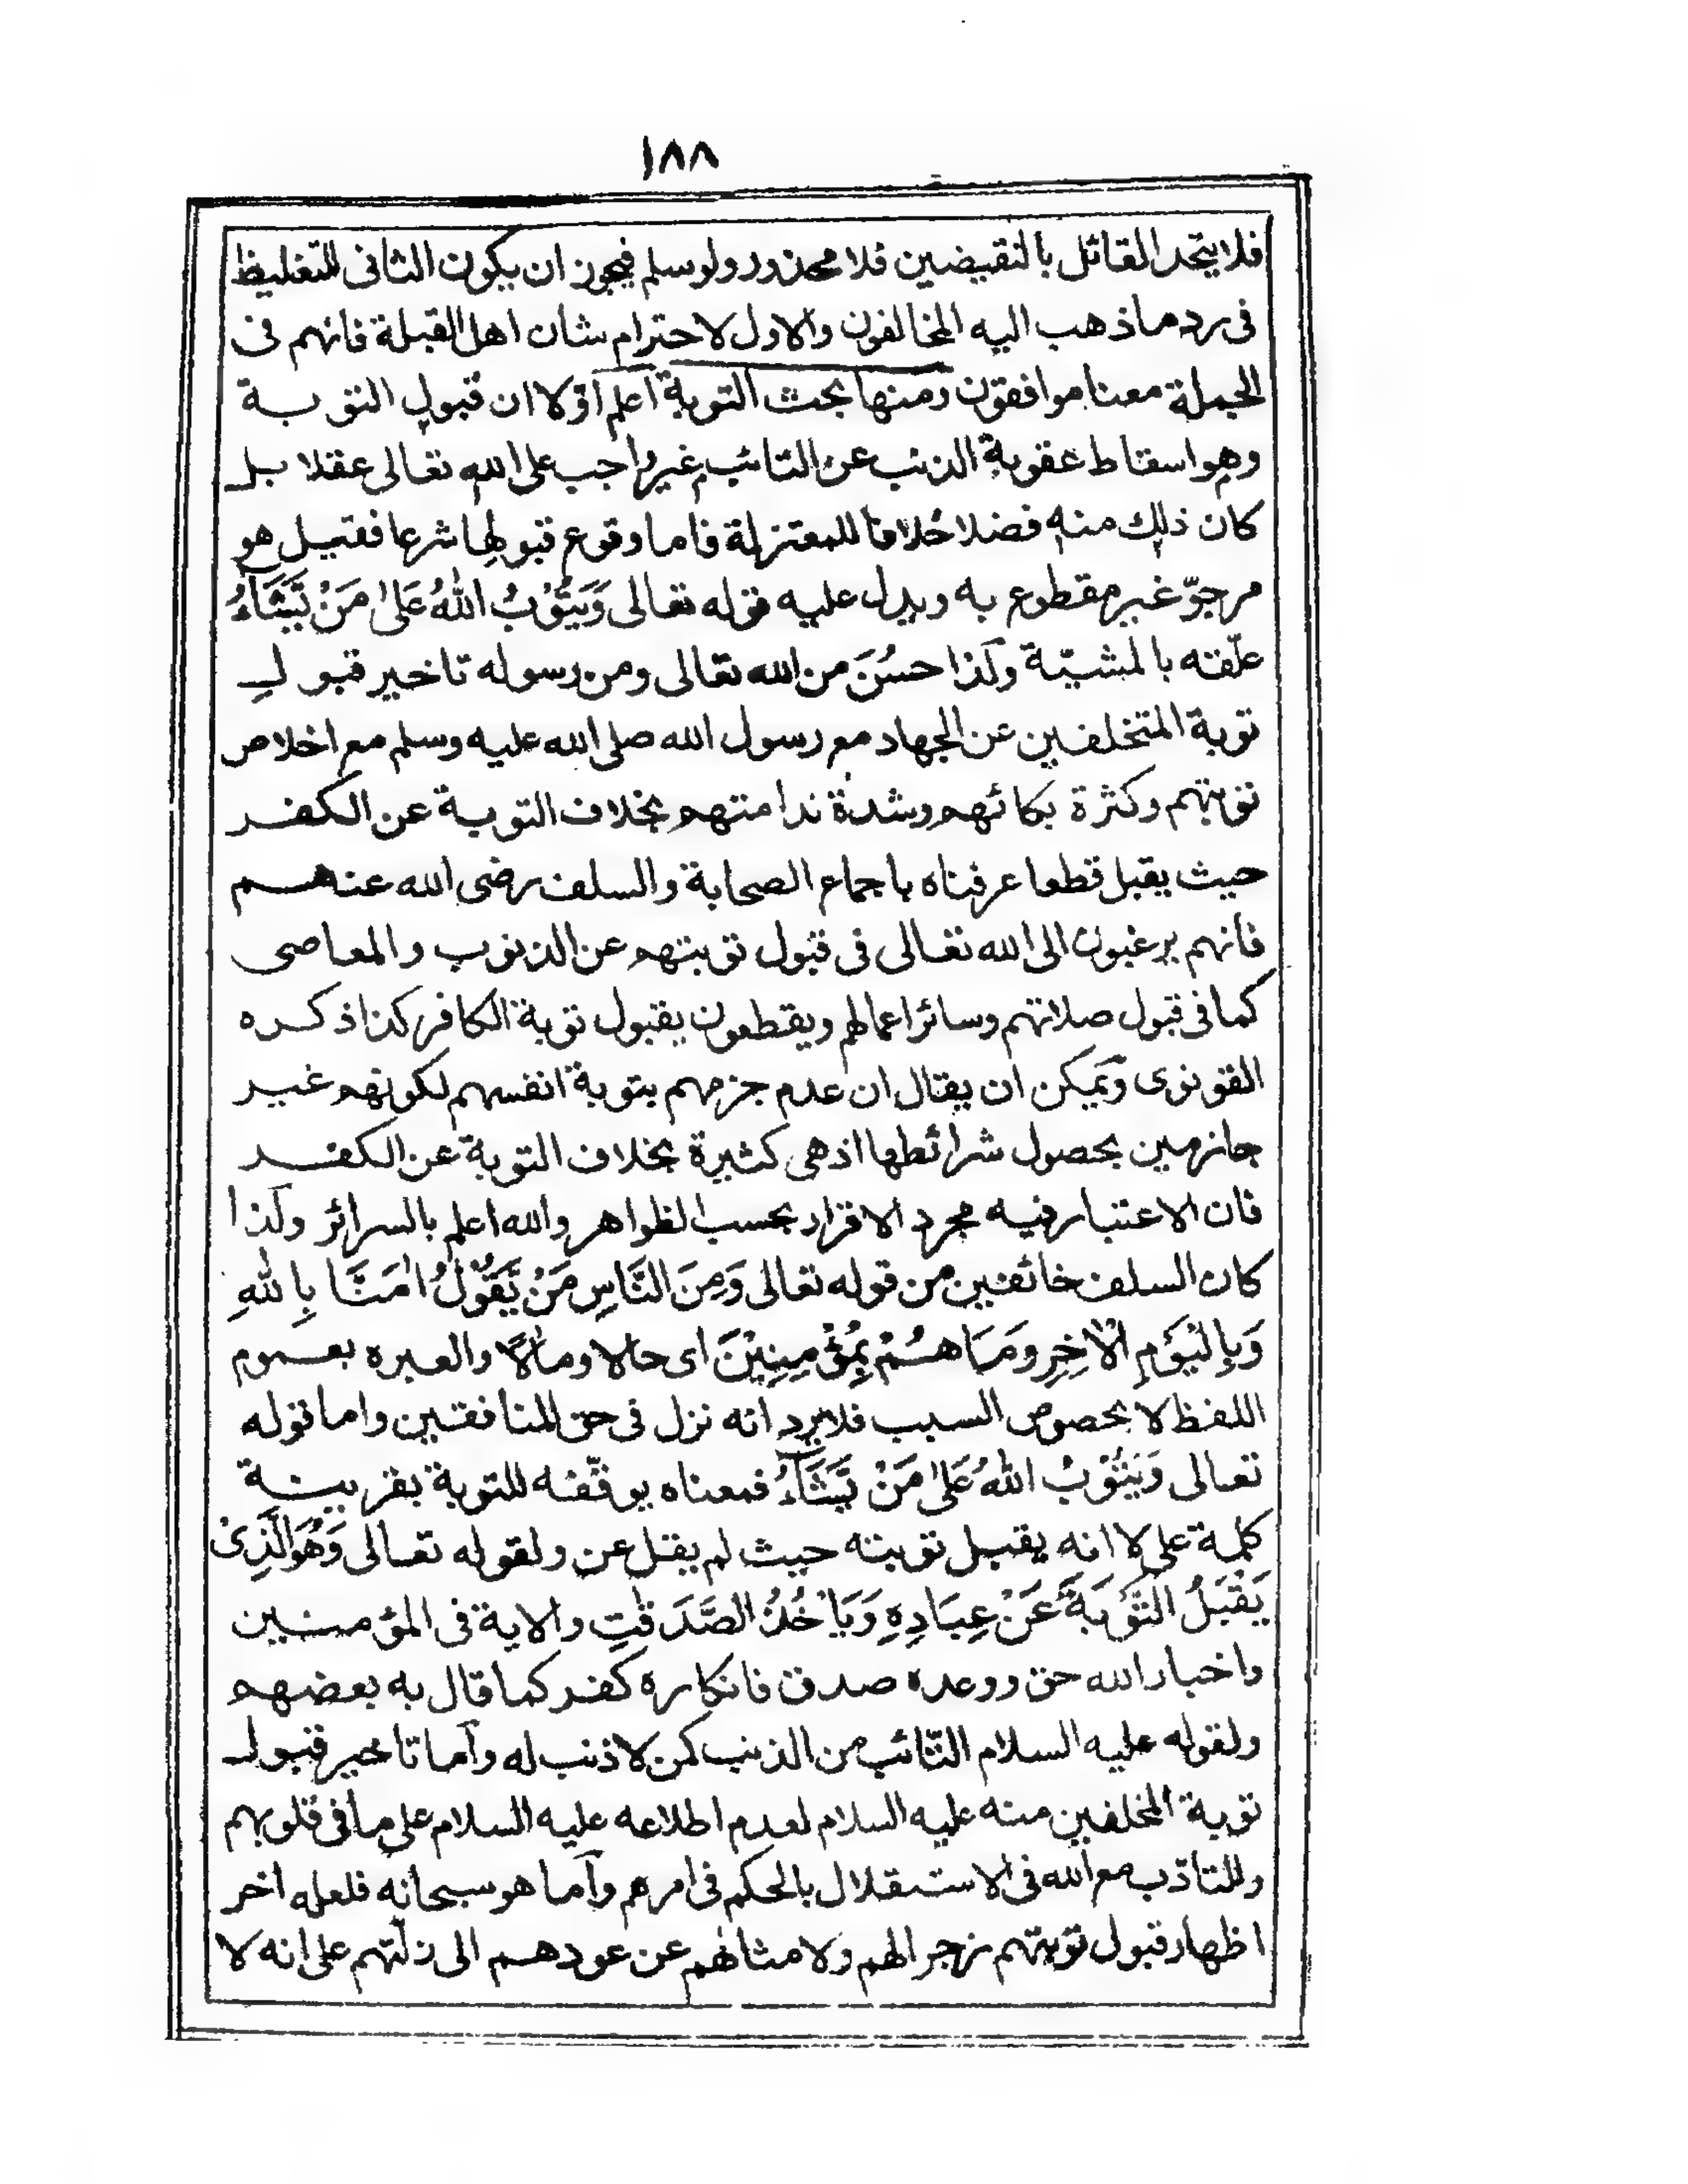 ١٨٨
فلا يتحد القائل بالنقيضين فلا محذور ولو سلم فيجوز ان يكون الثانى للتغليظ
فى رد ما ذهب اليه المخالفون والاول لاحترام شان اهل القبلة فانهم فى
الجملة معنا موافقون ومنها بحث التوبة اعلم اولا ان قبول التوبة
وهو اسقاط عقوبة الذنب عن التائب غير واجب على الله تعالى عقلا بل
كان ذلك منه فضلا خلافا للمعتزلة فاما وقوع قبولها شرعا فقيل هو
مرجوّ غير مقطوع به ويدل عليه قوله تعالى وَيَتُوْبُ اللّٰهُ عَلٰى مَنْ يَّشَآءُ
علّقته بالمشيّة ولذا حسُنَ من الله تعالى ومن رسوله تاخير قبول
توبة المتخلفين عن الجهاد مع رسول الله صلى الله عليه وسلم مع اخلاص
توبتهم وكثرة بكائهم وشدة ندامتهم بخلاف التوبة عن الكفر
حيث يقبل قطعا عرفناه باجماع الصحابة والسلف رضى الله عنهم
فانهم يرغبون الى الله تعالى فى قبول توبتهم عن الذنوب والمعاصى
كما فى قبول صلاتهم وسائر اعمالهم ويقطعون بقبول توبة الكافر كذا ذكره
القونوى ويمكن ان يقال ان عدم جزمهم بتوبة انفسهم لكونهم غير
جازمين بحصول شرائطها اذ هى كثيرة بخلاف التوبة عن الكفر
فان الاعتبار فيه مجرد الاقرار بحسب الظواهر والله اعلم بالسرائر ولذا
كان السلف خائفين من قوله تعالى وَمِنَ النَّاسِ مَنْ يَّقُوْلُ اٰمَنَّا بِاللّٰهِ
وَبِالْيَوْمِ الْاٰخِرِ وَمَا هُمْ بِمُؤْمِنِيْنَ اى حالا ومآلا والعبره بعموم
اللفظ لا بخصوص السبب فلا يرد انه نزل فى حق المنافقين واما قوله
تعالى وَيَتُوْبُ اللّٰهُ عَلٰى مَنْ يَّشَآءُ فمعناه يوفّقه للتوبة بقرينة
كلمة على لا انه يقبل توبته حيث لم يقل عن ولقوله تعالى وَهُوَ الَّذِىْ
يَقْبَلُ التَّوْبَةَ عَنْ عِبَادِهٖ وَيَاْخُذُ الصَّدَقٰتِ والاية فى المؤمنين
واخبار الله حق ووعده صدق فانكاره كفر كما قال به بعضهم
ولقوله عليه السلام التّائب من الذنب كمن لا ذنب له واما تاخير قبول
توبة المخلفين منه عليه السلام لعدم اطلاعه عليه السلام على ما فى قلوبهم
وللتادّب مع الله فى الاستقلال بالحكم فى امرهم واما هو سبحانه فلعله اخر
اظهار قبول توبتهم زجرا لهم ولامثالهم عن عودهم الى زلّتهم على انه لا